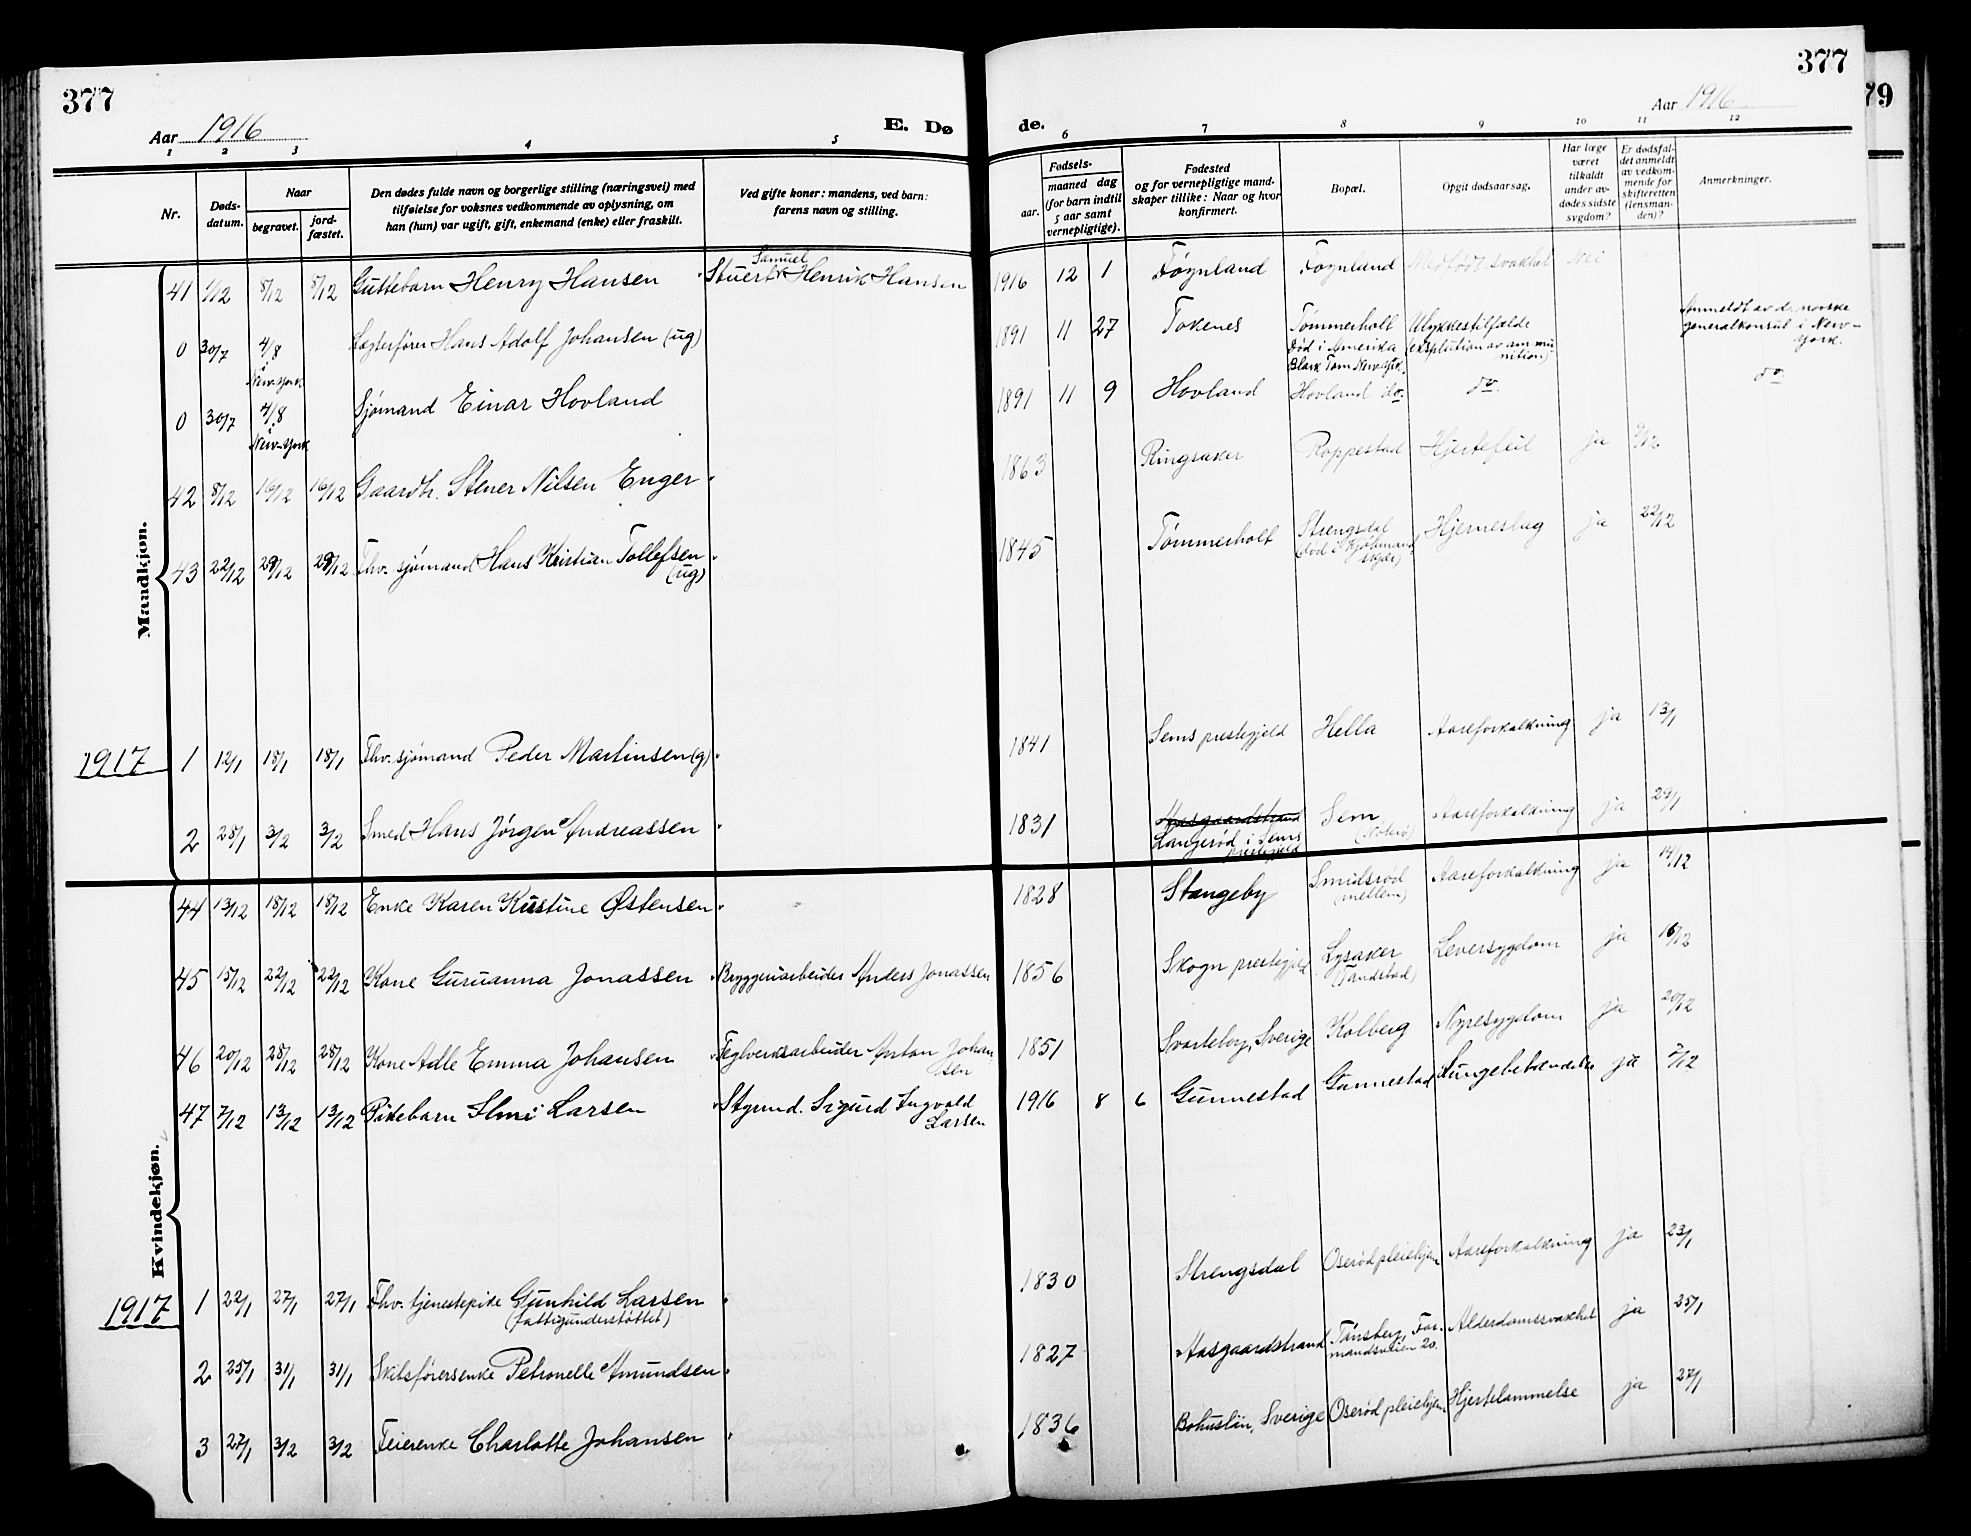 377
377
79
Aar 1916
E. Dø
de.
Aar 1916
1 2 3 4 5
6 7 8 9 10 11 12
Nr.
Døds-
datum.
Naar
begravet.
jord-
fæstet.
Den dødes fulde navn og borgerlige stilling (næringsvei) med
tilføielse for voksnes vedkommende av oplysning, om
han (hun) var ugift, gift, enkemand (enke) eller fraskilt.
Ved gifte koner: mandens, ved barn:
farens navn og stilling.
Fødsels-
aar.
maaned dag
(for barn indtil
5 aar samt
vernepligtige).
Fødested
og for vernepligtige mand-
skaper tillike: Naar og hvor
konfirmert.
Bopæl.
Opgit dødsaarsag.
Har læge
været
tilkaldt
under av-
dødes sidste
sygdom?
Er dødsfal-
det anmeldt
av vedkom-
mende for
skifteretten
(lensman-
den)?
Anmerkninger.
Mandkjøn.
Samuel
41 1/12 8/12 8/12 Guttebarn Henry Hansen Stuert Henrik Hansen 1916 12 1 Føynland Føynland Medfødt svakhet Nei
0 30/7 4/8 Lægterfører Hans Adolf Johansen (ug) 1891 11 27 Tokenes Tømmerholt Ulykkestilfælde Anmeldt av de norske
i New-York
død i Amerika (eksplotion av ammu- generalkonsul i New-
Black Tom New-York. nition) York.
0 30/7 4/8 Sjømand Einar Hovland 1891 11 9 Hovland Hovland do. do. do.
i New-York
42 8/12 16/12 16/12 Gaardbr. Stener Nilsen Enger 1863 Ringsaker Roppestad Hjertefeil ja 9/12
43 22/12 29/12 29/12 Fhv. sjømand Hans Kristian Tollefsen 1845 Tømmerholt Strengsdal Hjerneslag ja 22/12
(ug) (død i Kjøbmand
skjær)
1917 1 12/1 18/1 18/1 Fhv. sjømand Peder Martinsen (g) 1841 Sems prestegjeld Hella Aareforkalkning ja 13/1
2 28/1 3/2 3/2 Smed Hans Jørgen Andreassen 1831 Aasgaardstrand Sem Aareforkalkning ja 29/1
Langerød i Sems
prestegjeld
Kvindekjøn.
44 13/12 18/12 18/12 Enke Karen Kristine Østensen 1828 Stangeby Smidsrød Aareforkalkning ja 14/12
(mellem)
45 15/12 22/12 22/12 Kone Guruanna Jonassen Bryggeriarbeider Anders Jonassen 1856 Skogn prestegjeld Lysaker Leversygdom ja 16/12
46 20/12 28/12 28/12 Kone Adle Emma Johansen Teglverksarbeider Anton Johan- 1851 Svarteborg, Sverige Kolberg Nyresygdom ja 20/12
sen
47 7/12 13/12 13/12 Pikebarn Elmi Larsen Styrmd. Sigurd Ingvald 1916 8 6 Gunnestad Gunnestad Lungebetændelse ja 7/12
Larsen
1917 1 22/1 27/1 27/1 Fhv. tjenestepike Gunhild Larsen 1830 Strengsdal Oserød pleiehjem Aareforkalkning ja 23/1
(fattigunderstøttet)
2 25/1 31/1 31/1 Skibsførersenke Petronelle Amundsen 1827 Aasgaardstrand Tønsberg, For- Alderdomssvakhet ja 25/1
mandsveien 20.
3 27/1 3/2 3/2 Feierenke Charlotte Johansen 1836 Bohuslän, Sverige Oserød pleiehjem Hjertelammelse ja 27/1